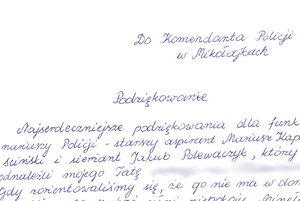 Do Komendanta Policji
w Mikołajkach
Podziękowanie
Najserdeczniejsze podziękowania dla funk
nariuszy Policji - starszy aspirant Mariusz Kap
ściński i sierżant Jakub Polewaczyk, który
odnaleźli mojego Tatę
gdy zorientowaliśmy się, że go nie ma w dom